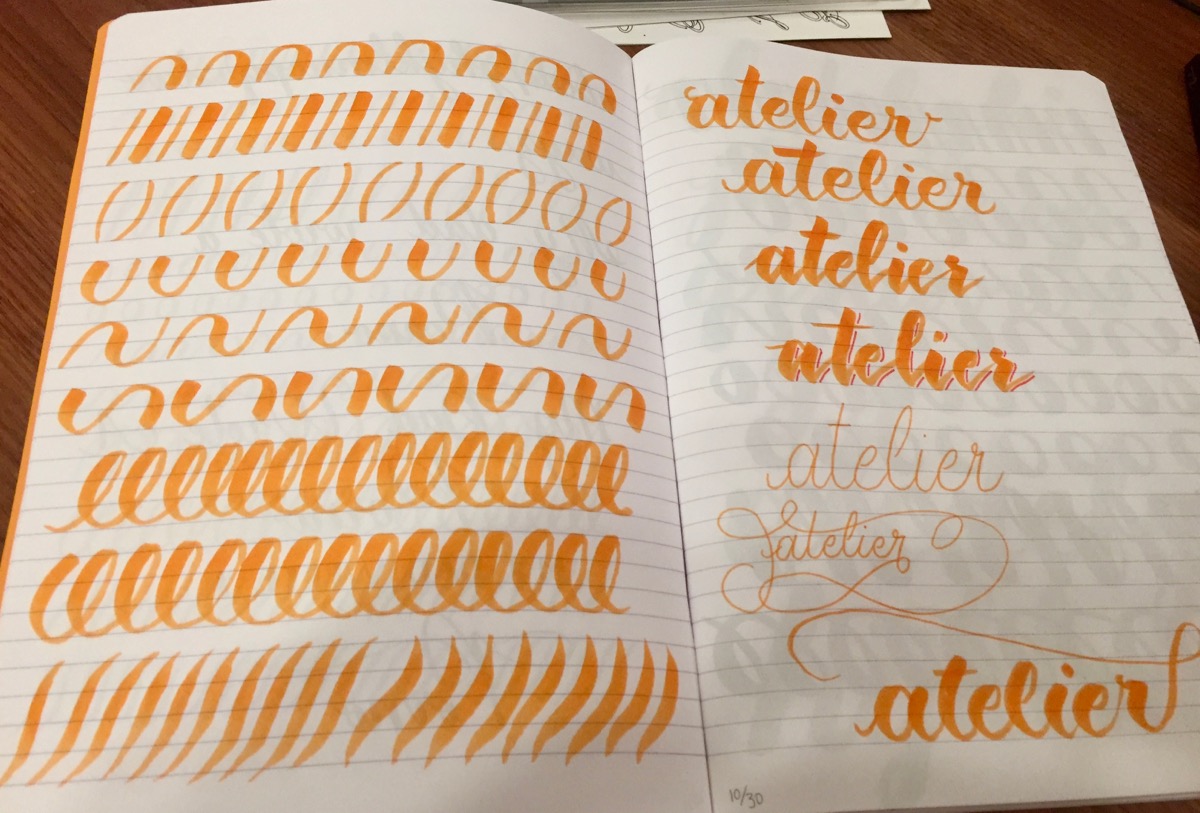 atelier
atelier
atelier
atelier
atelier
atelier
atelier
10/30